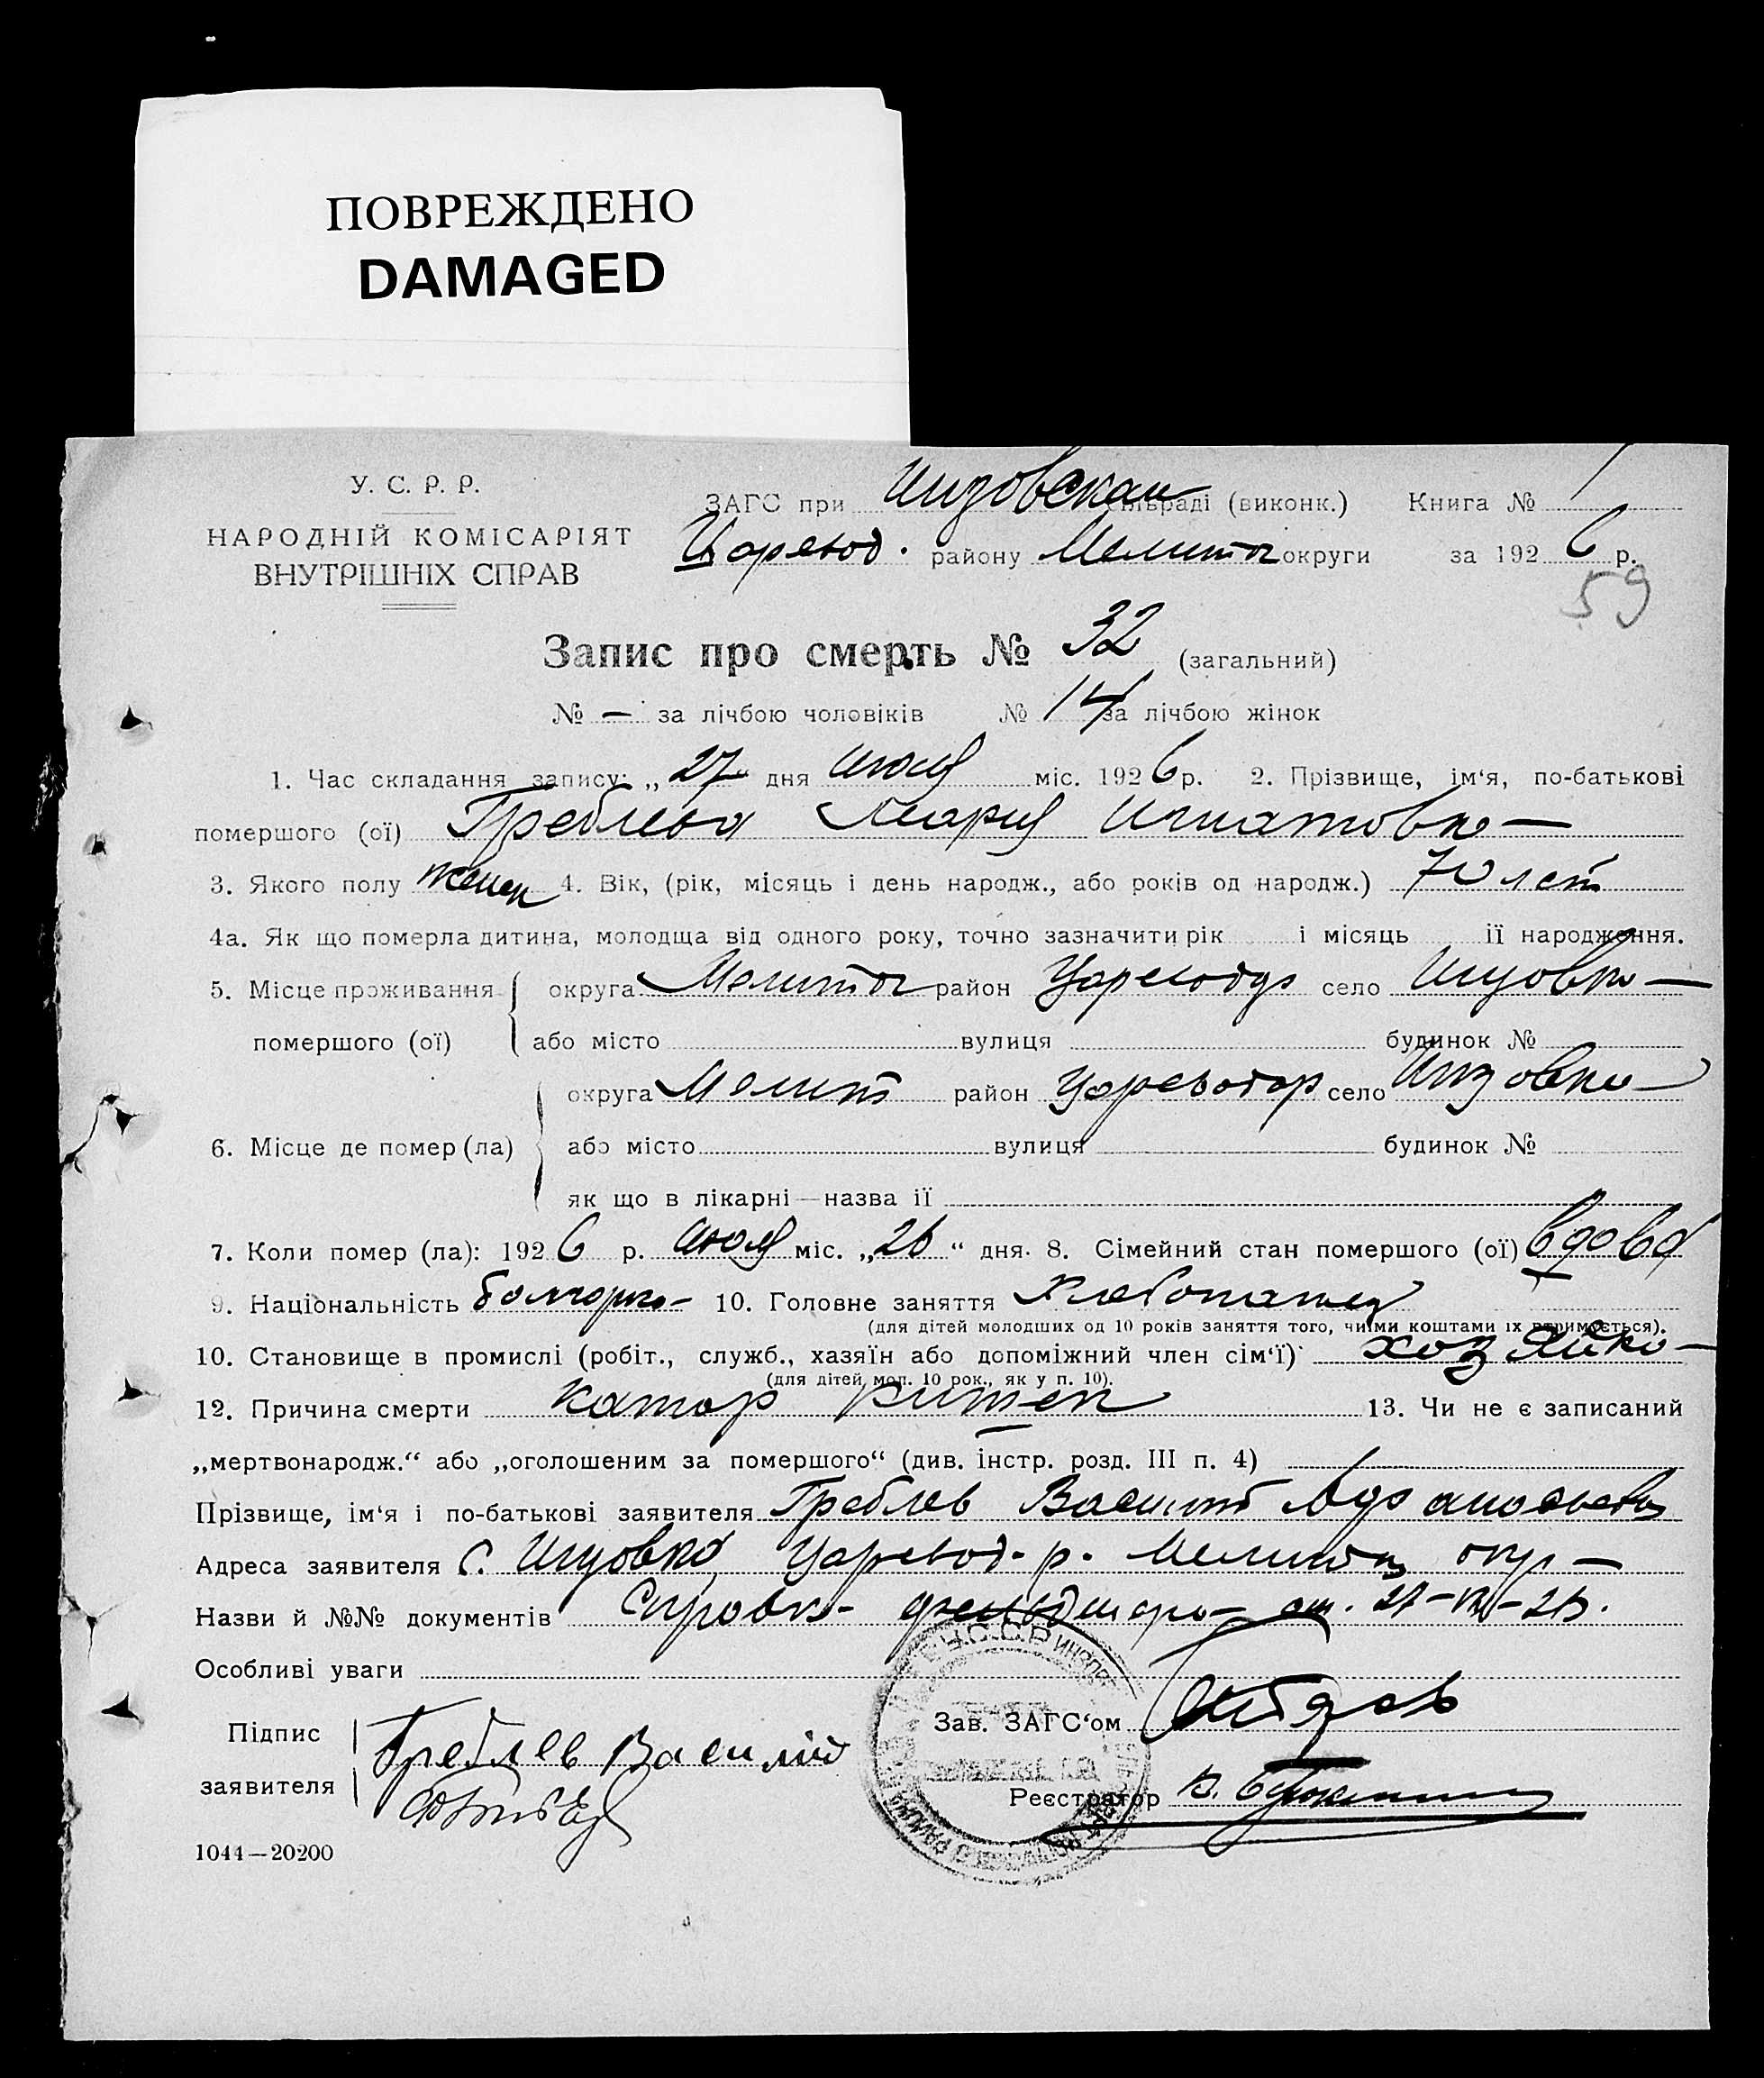 ПОВРЕЖДЕНО
DAMAGED
У. С. Р. Р.
НАРОДНІЙ КОМІСАРІЯТ
ВНУТРІШНІХ СПРАВ
ЗАГС при Инзовской сільраді (виконк.) Книга № 1
Царевод. району Мелитоп округи за 1926 р.
59
Запис про смерть № 32 (загальний)
№ — за лічбою чоловіків № 14 за лічбою жінок
1. Час складання запису: „27" дня июля міс. 1926 р. 2. Прізвище, ім'я, по-батькові
помершого (ої) Греблева Мария Игнатовна —
3. Якого полу женск 4. Вік, (рік, місяць і день народж., або років од народж.) 70 лет
4а. Як що померла дитина, молодща від одного року, точно зазначити рік і місяць ії народження.
5. Місце проживання помершого (ої) округа Мелитоп район Царевод село Инзовка —
або місто вулиця будинок №
6. Місце де помер (ла) округа Мелит район Царевод село Инзовка
або місто вулиця будинок №
як що в лікарні—назва ії
7. Коли помер (ла): 1926 р. июля міс. „26" дня. 8. Сімейний стан помершого (ої) вдова
9. Національність болгарка 10. Головне заняття Хлебопашец
(для дітей молодших од 10 років заняття того, чиіми коштами іх втримується).
10. Становище в промислі (робіт., служб., хазяїн або допоміжний член сім'ї) хозяйка —
(для дітей мол. 10 рок., як у п. 10).
12. Причина смерти катар 13. Чи не є записаний
„мертвонародж." або „оголошеним за помершого" (див. інстр. розд. III п. 4)
Прізвище, ім'я і по-батькові заявителя Греблев Василий
Адреса заявителя с. Инзовка, Царевод. р. Мелитоп окр —
Назви й №№ документів Справка фельдшера от. 27-VII-26.
Особливі уваги
Зав. ЗАГС'ом
Підпис заявителя Греблев Василий
Реєстратор В.
1044—20200